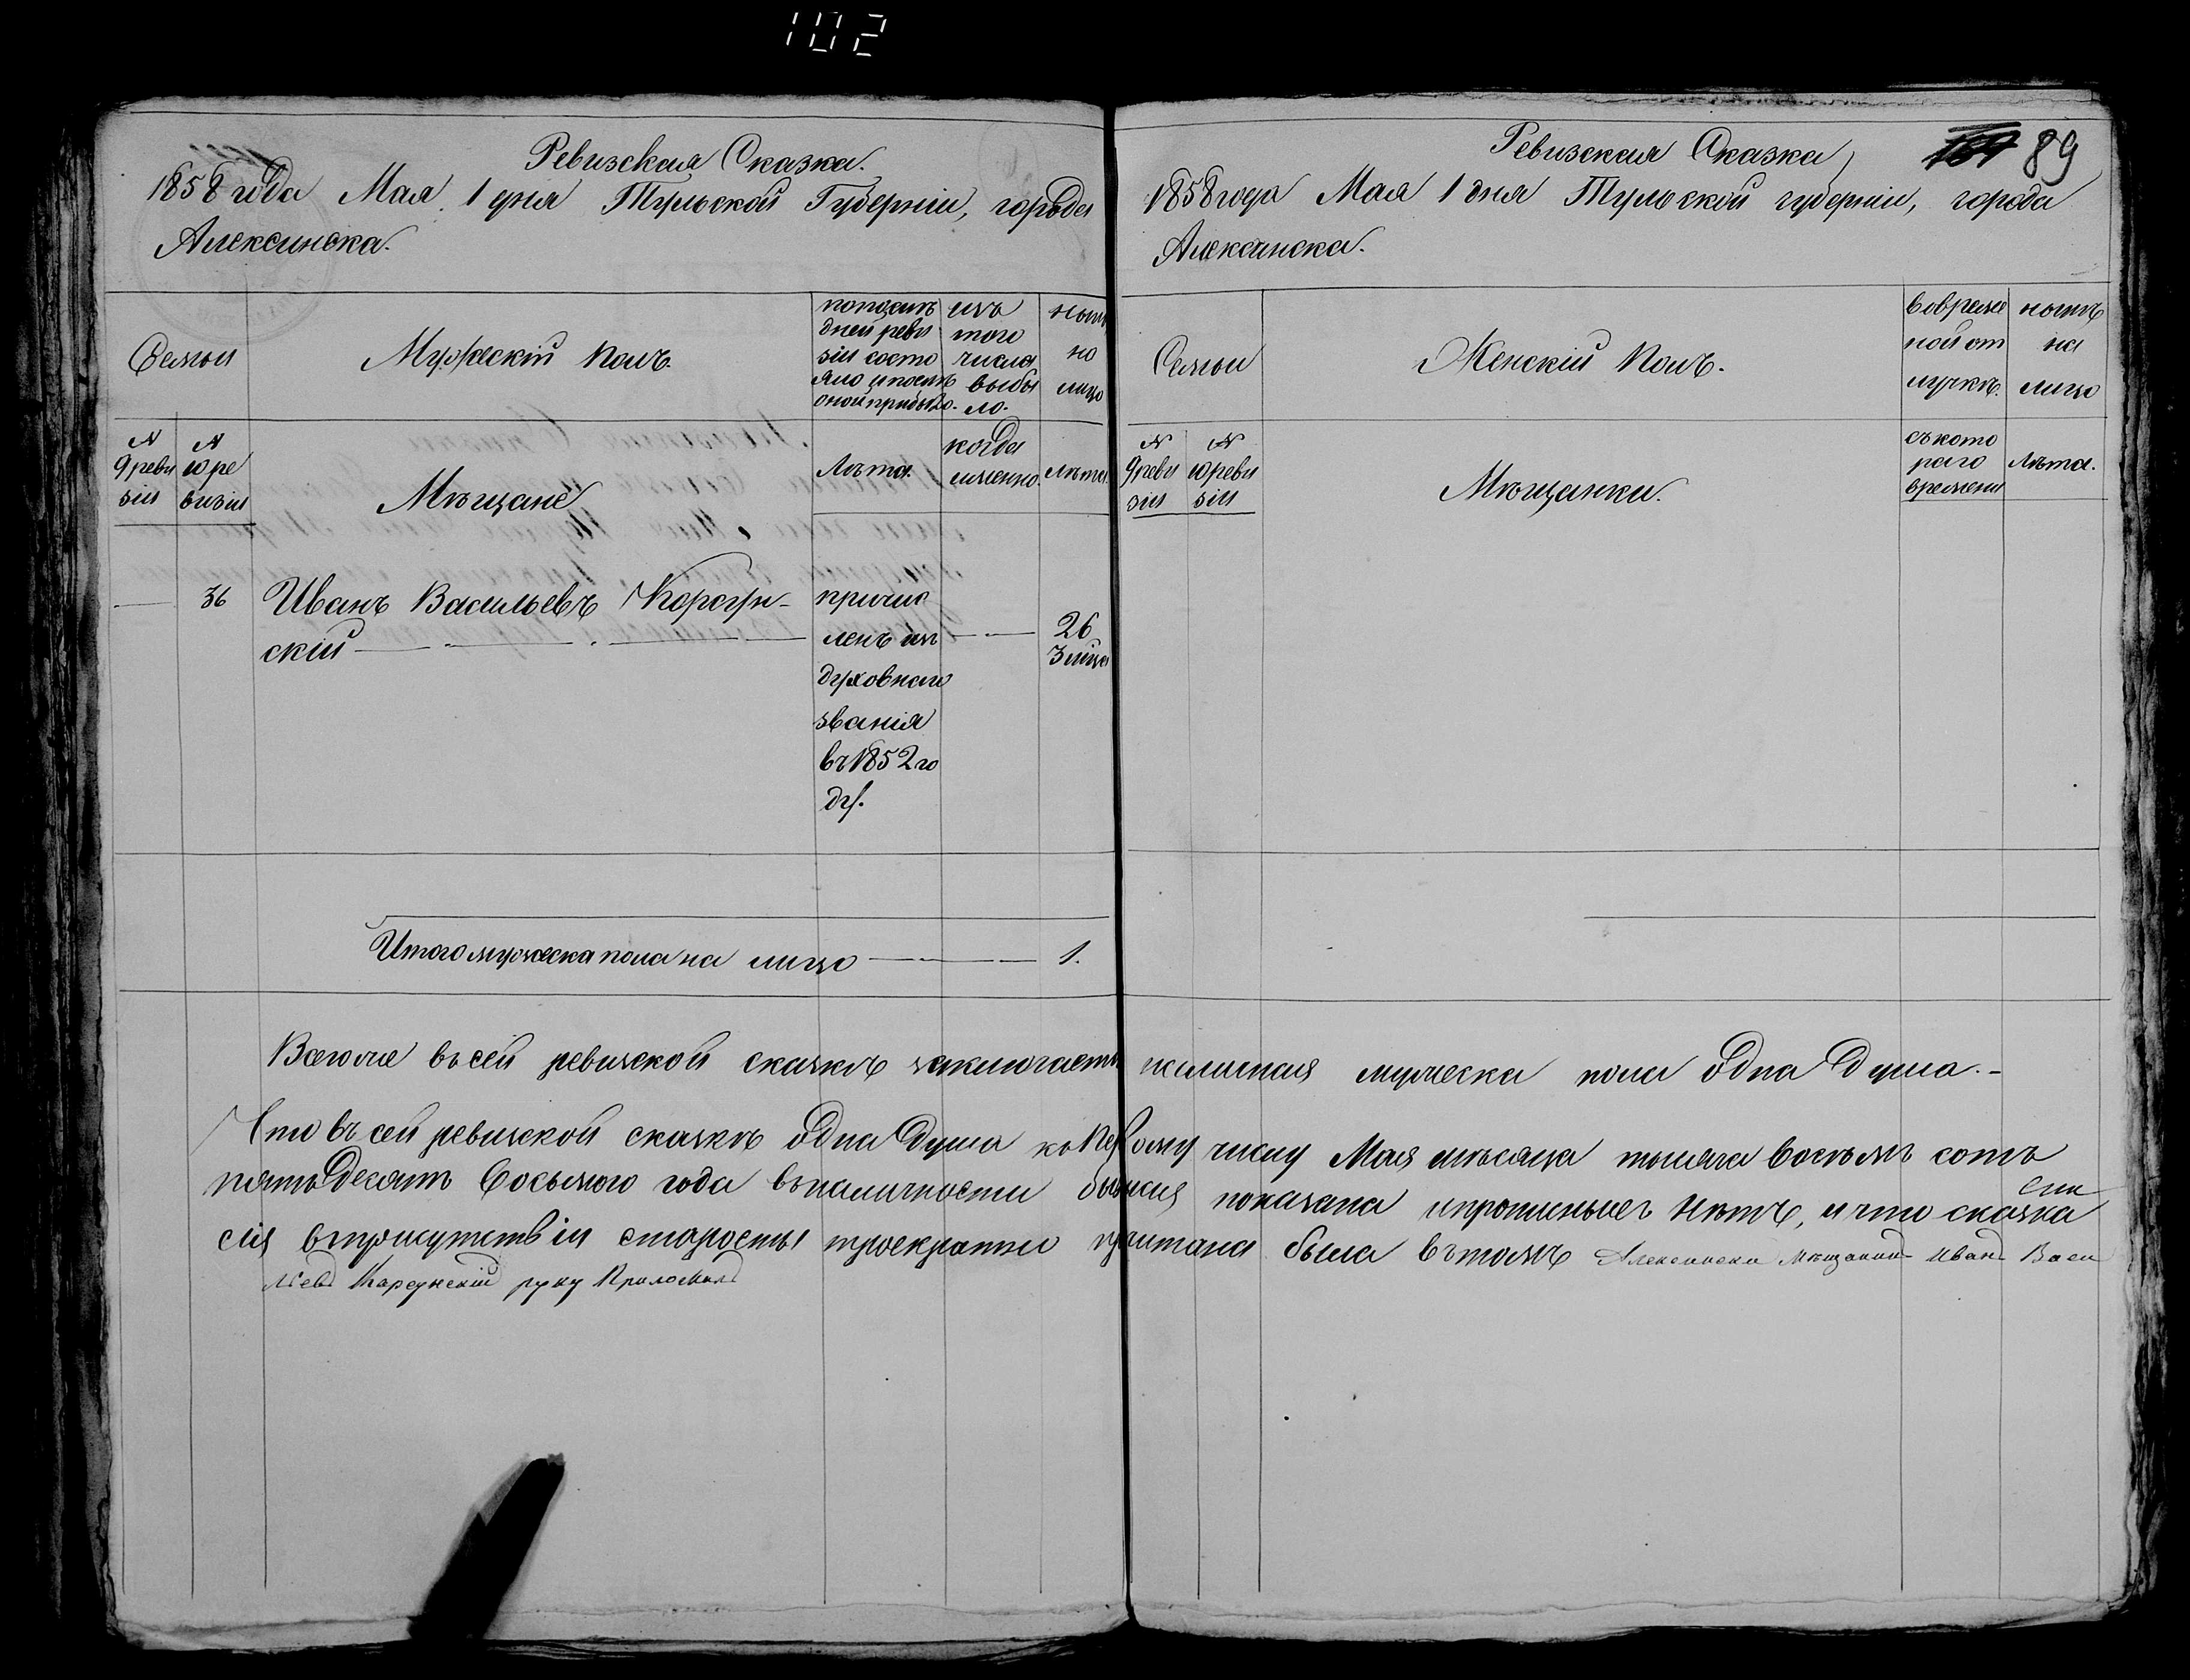 102
Ревизская Сказка.
1858 года Мая 1 дня Тульской Губерніи, города
Алексинска.
Семьи
Мужескій полъ.
попослѣ
дней реви
зіи состо
яло и послѣ
оной прибыло.
изъ
того
числа
выбы
ло.
нынѣ
на
лицо
N
9 реви
зіи
N
10 ре
визіи
Мѣщане
Лѣта.
когда
именно.
лѣта.
36
Иванъ Васильевъ
скій
причис
ленъ изъ
духовнаго
званія
въ 1852 го
ду.
26
3 лица
Итого мужеска пола на лицо 1.
Ревизская Сказка
89
1858 года Мая 1 дня Тульской губерніи, города
Алексинска.
Семьи
Женскій полъ.
вовремен
ной от
лучкѣ.
нынѣ
на
лицо
N
9 реви
зіи
N
10 реви
зіи
Мѣщанки.
съ кото
раго
времени
Лѣта.
Всего же въ сей ревизской сказкѣ заключается наличная мужеска пола одна душа.
Что въ сей ревизской сказкѣ одна душа къ первому числу Мая мѣсяца тысяча восемь сотъ
пятьдесятъ восьмого года въ наличности бывшая показана и прописныхъ нѣтъ, и что сказка
сія въ присутствіи старосты троекратно читана была въ томъ Алексински Мѣщанин Иван Васи
льев Карсунский руку Приложил